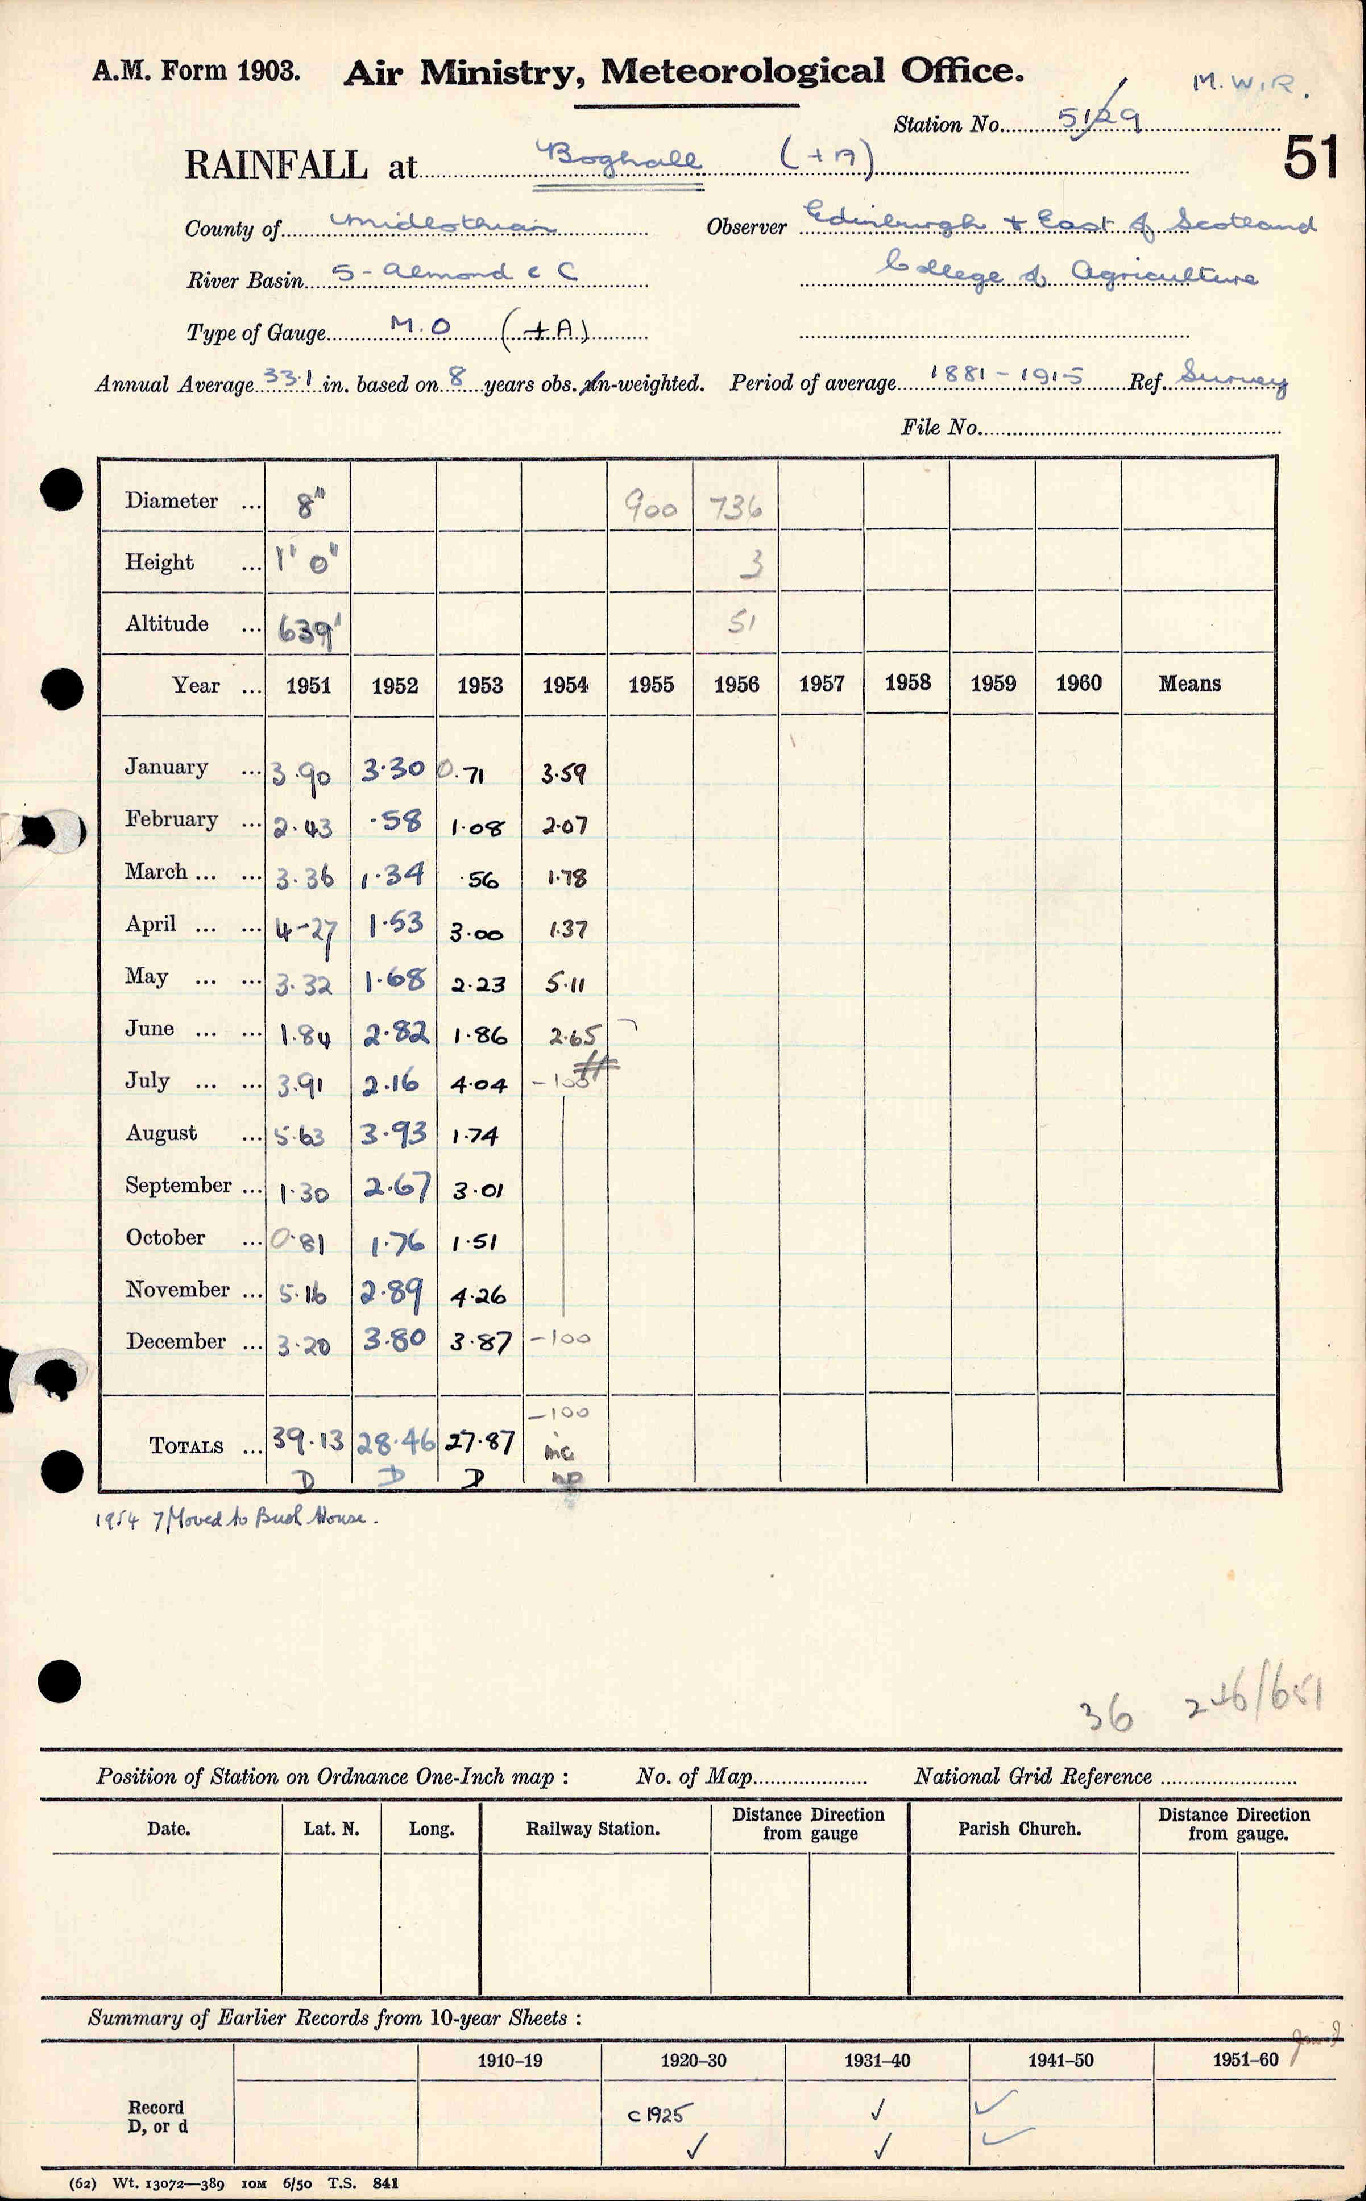 A.M. Form 1903. Air Ministry, Meteorological Office.
M.W.R.
Station No. 5129
51
RAINFALL at Boghall (+A)
County of Midlothian Observer Edinburgh & East of Scotland
River Basin 5-Almond e C College of Agriculture
Type of Gauge M.O (+A)
Annual Average 33.1 in. based on 8 years obs. un-weighted. Period of average 1881-1915 Ref. Survey
File No.
Diameter ... 8" 900 736
Height ... 1' 0" 3
Altitude ... 639' 51
Year ... 1951 1952 1953 1954 1955 1956 1957 1958 1959 1960 Means
January ... 3.90 3.30 0.71 3.59
February ... 2.43 .58 1.08 2.07
March ... ... 3.36 1.34 .56 1.78
April ... ... 4-27 1.53 3.00 1.37
May ... ... 3.32 1.68 2.23 5.11
June ... ... 1.84 2.82 1.86 2.65
July ... ... 3.91 2.16 4.04 -100
August ... 5.63 3.93 1.74
September ... 1.30 2.67 3.01
October ... 0.81 1.76 1.51
November ... 5.16 2.89 4.26
December ... 3.20 3.80 3.87 -100
-100
TOTALS ... 39.13 28.46 27.87 inc
D D D
1954 7 Moved to Bush House.
36 246/651
Position of Station on Ordnance One-Inch map : No. of Map National Grid Reference
Date. Lat. N. Long. Railway Station. Distance Direction from gauge Parish Church. Distance Direction from gauge.
Summary of Earlier Records from 10-year Sheets :
1910-19 1920-30 1931-40 1941-50 1951-60
Record c1925 ✓ ✓
D, or d ✓ ✓ ✓
(62) Wt. 13072—389 10M 6/50 T.S. 841